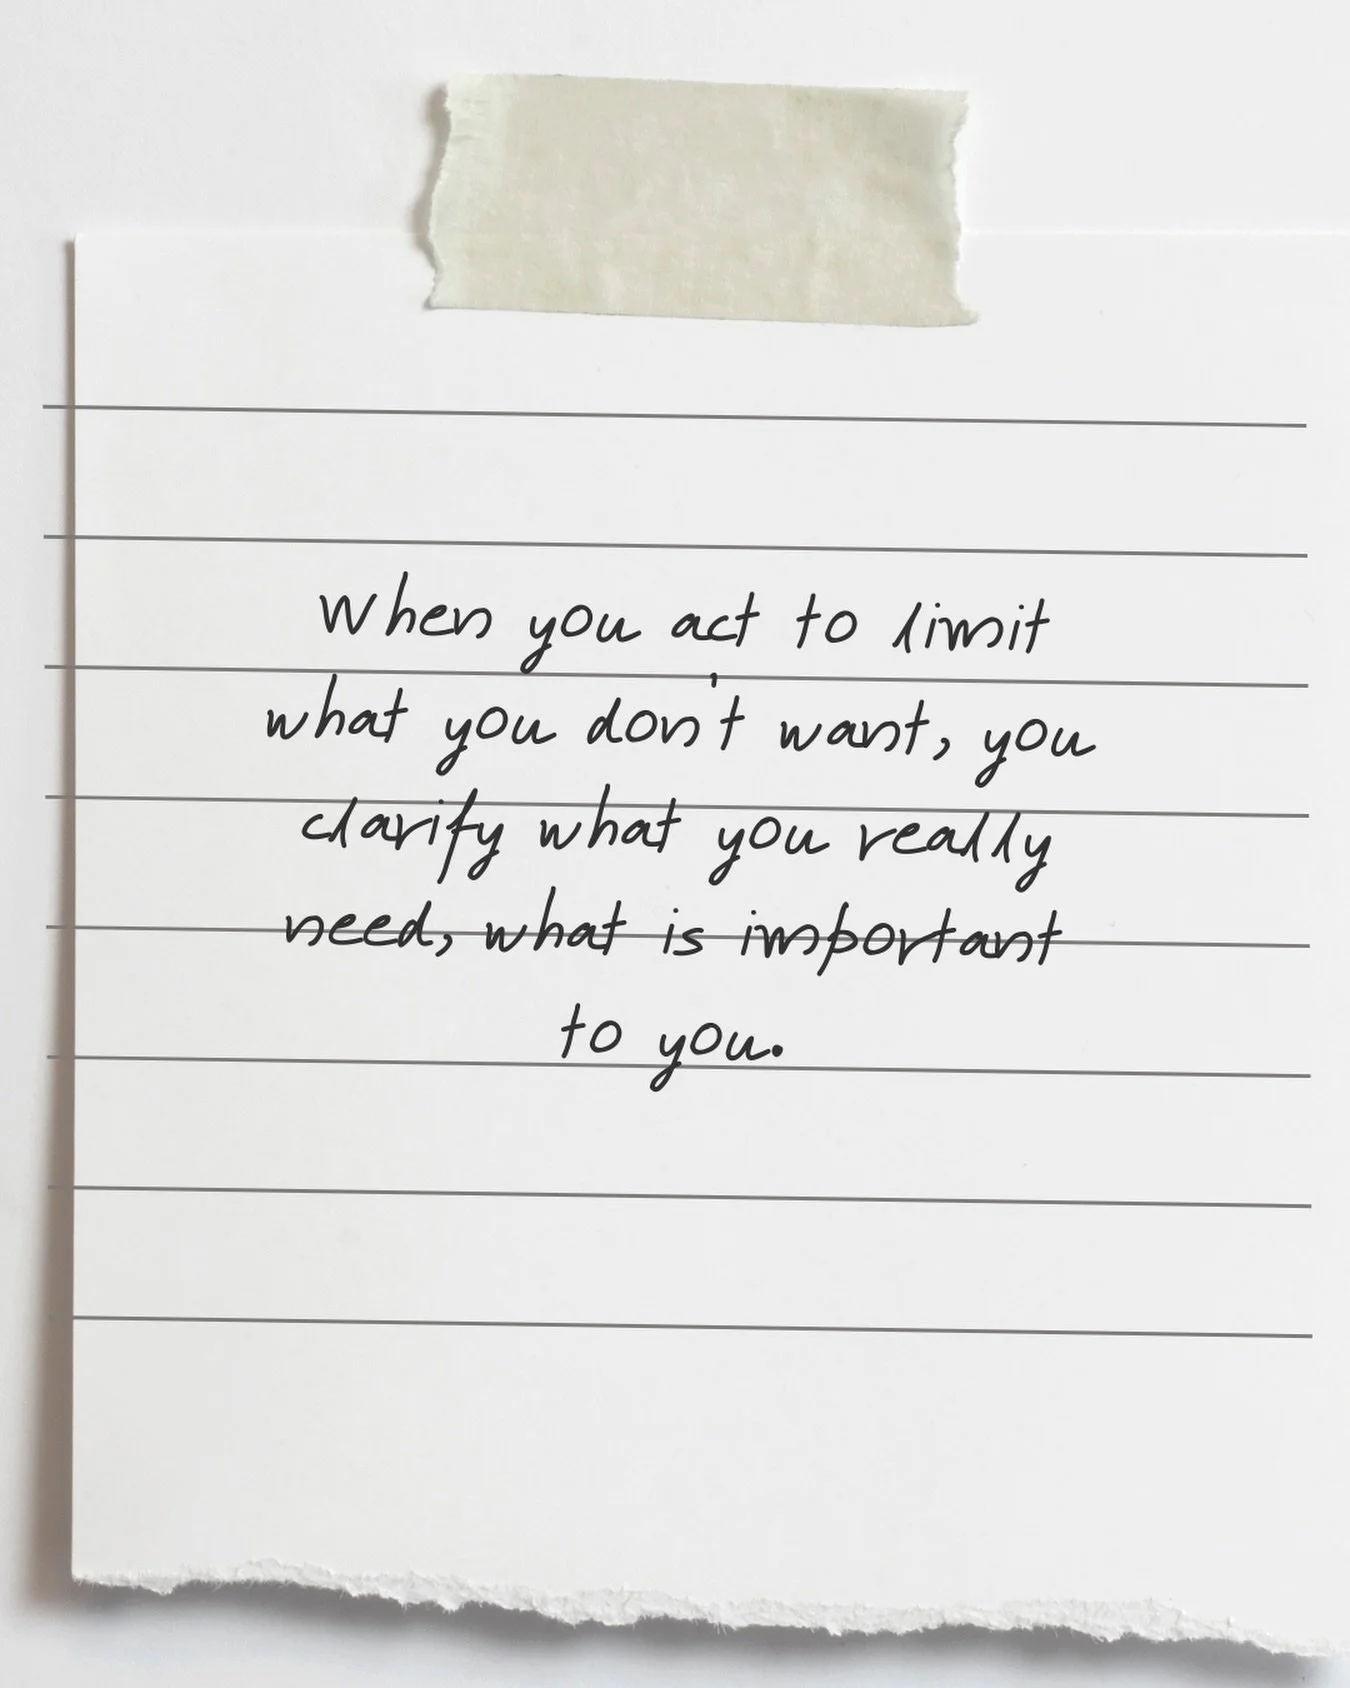 When you act to limit
what you don't want, you
clarify what you really
need, what is important
to you.